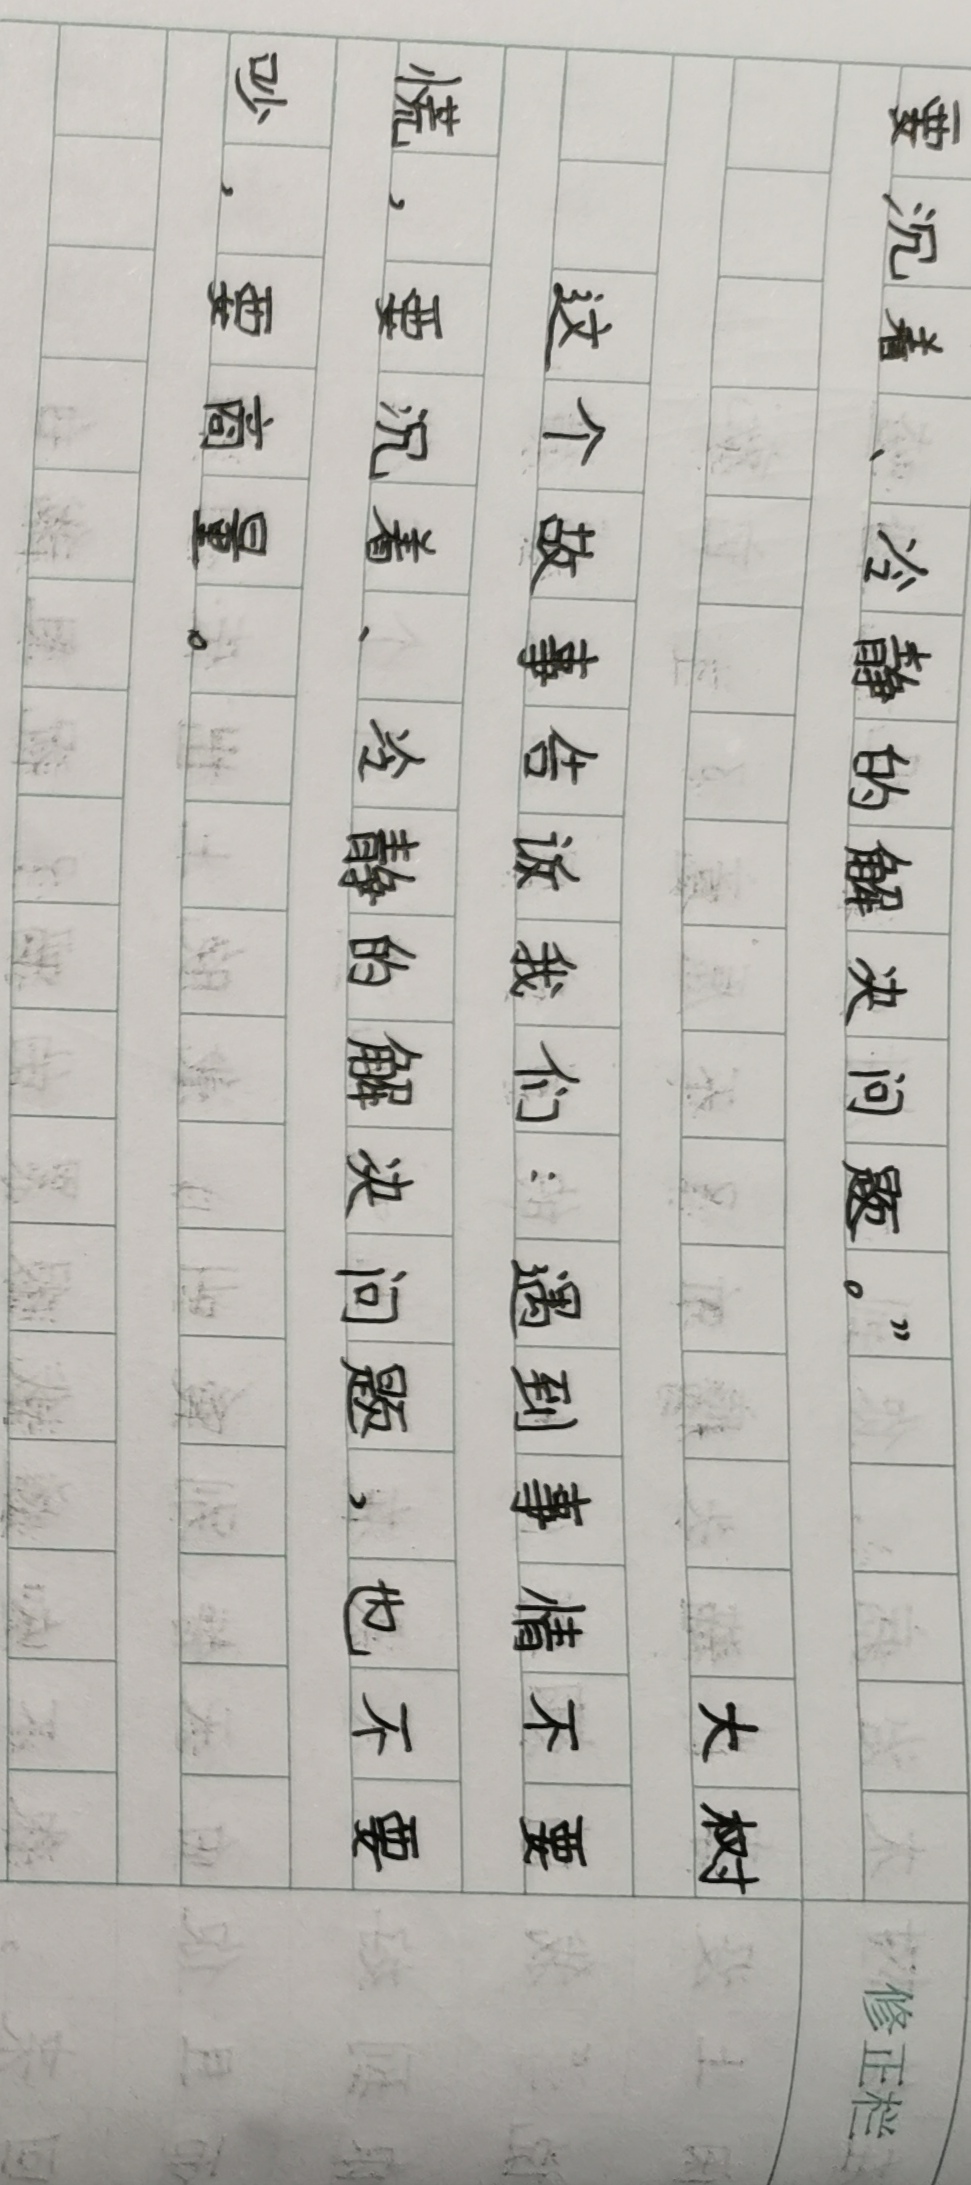 要沉着、冷静的解决问题。”
大树
这个故事告诉我们：遇到事情不要
慌，要沉着、冷静的解决问题，也不要
吵，要商量。
修正栏